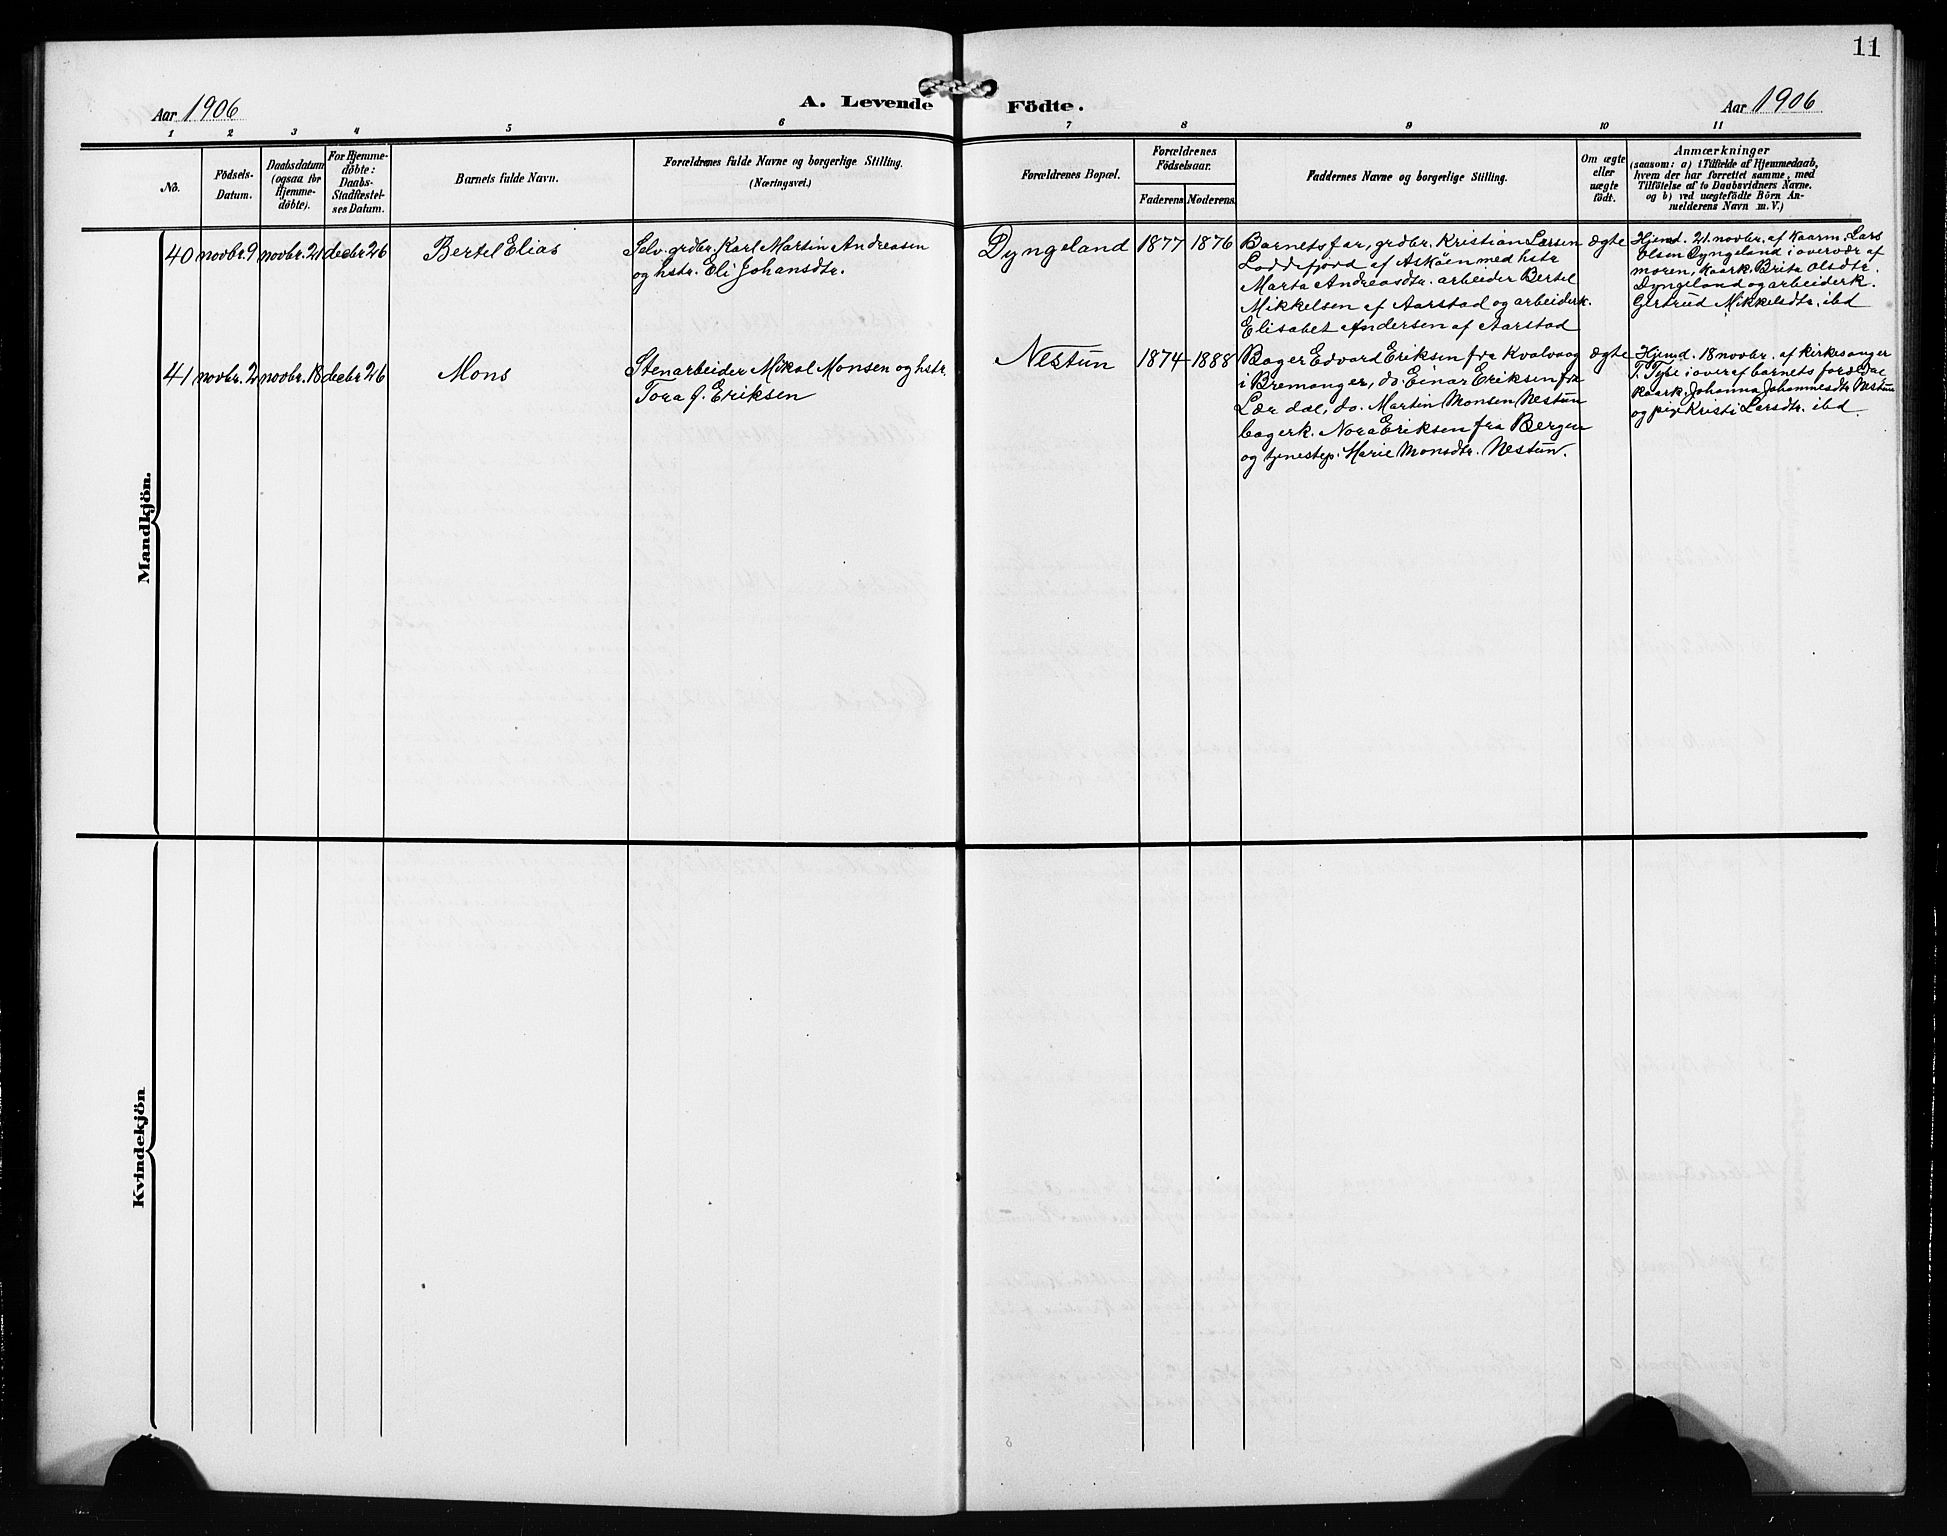 11
Aar 1906
A. Levende Födte.
Aar 1906
1 2 3 4 5 6 7 8 9 10 11
No.
Födsels-
Datum.
Daabsdatum
(ogsaa for
Hjemme-
döbte).
For Hjemme-
döbte:
Daabs-
Stadfæstel-
ses Datum.
Barnets fulde Navn.
Forældrenes fulde Navne og borgerlige Stilling.
(Næringsvei.)
Forældrenes Bopæl.
Forældrenes
Födselsaar.
Faderens
Moderens.
Faddernes Navne og borgerlige Stilling.
Om ægte
eller
uægte
födt.
Anmærkninger
(saasom: a) i Tilfælde af Hjemmedaab,
hvem der har forrettet samme, med
Tilföielse af to Daabsvidners Navne.
og b) ved uægtefödte Börn An-
melderens Navn m. V.)
Mandkjön.
40 novbr. 9 novbr. 21 decbr 26
Bertel Elias
Selv. grdbr. Karl Martin Andreasen
og hstr. Eli Johansdtr.
Dyngeland
1877
1876
Barnets far, grdbr. Kristian Larsen
Loddefjord af Asköen med hstr
Marta Andreasdtr. arbeider Bertel
Mikkelsen af Aarstad og arbeiderk.
Elisabet Andersen af Aarstad
ægte
Hjemd. 21. novbr. af kaarm. Lars
Olsen Dyngeland i overvær af
moren, kaark. Brita Olsdtr.
Dyngeland og arbeiderk.
Gertrud Mikkelsdtr. ibd
41 novbr. 2 novbr. 18 decbr 26
Mons
Stenarbeider Mikal Monsen og hstr.
Tora J. Eriksen
Nestun
1874
1888
Bager Edvard Eriksen fra Kvalvaag
i Bremanger, do. Einar Eriksen fra
Lærdal, do. Martin Monsen Nestun
bagerk. Nora Eriksen fra Bergen
og tjenestep. Marie Monsdtr. Nestun.
ægte
Hjemd. 18 novbr. af kirkesanger
T. Tybe i over af barnets forældre
kaark. Johanna Johannesdtr Nestun
og pige Kristi Larsdtr. ibd.
Kvindekjön